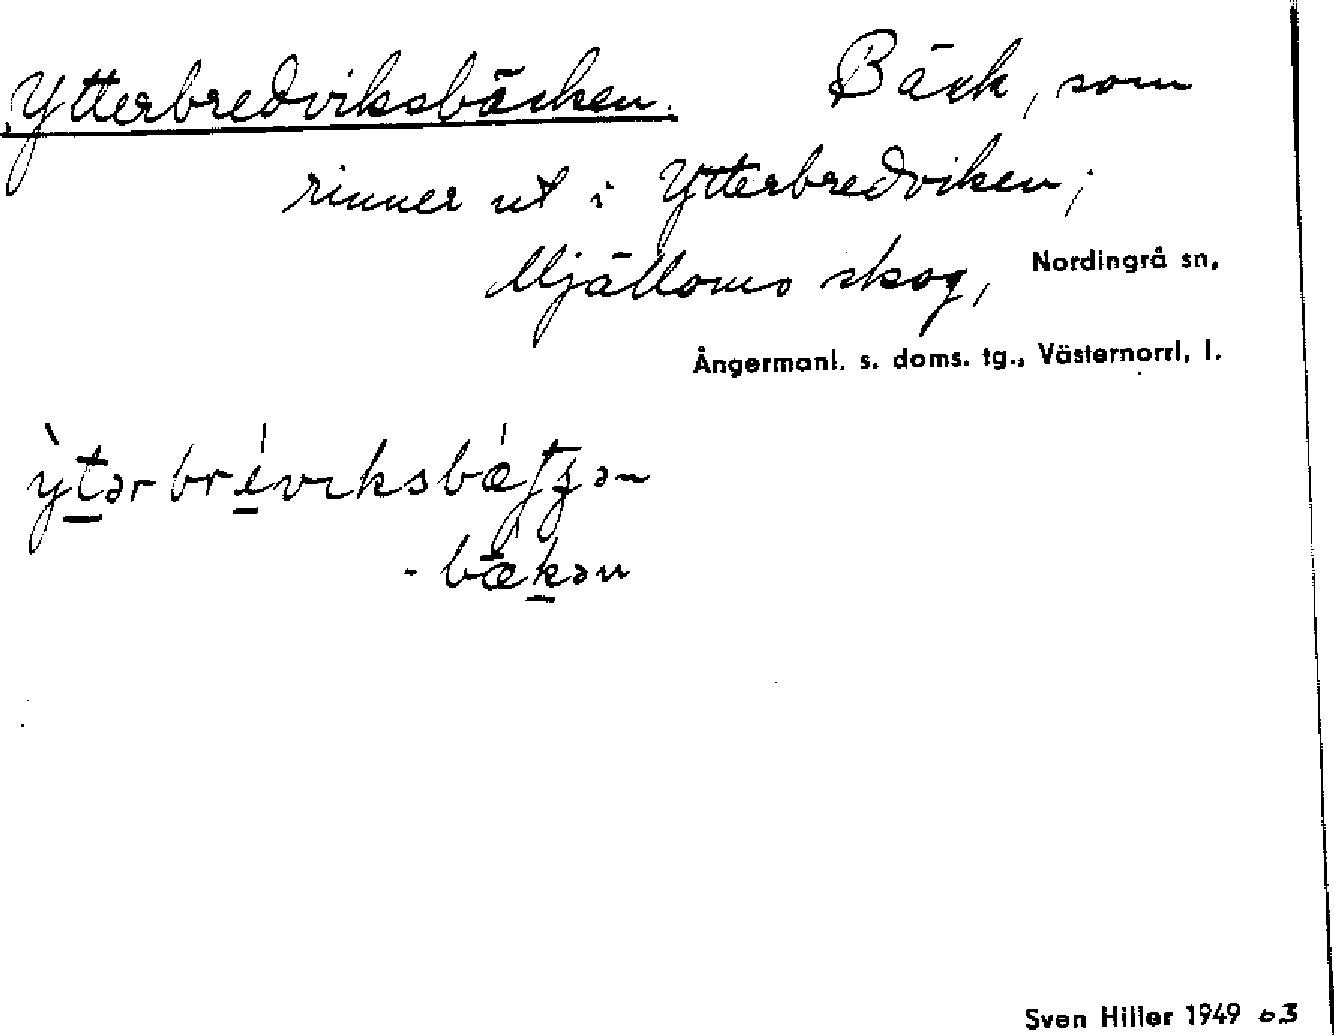 Ytterbredviksbäcken. Bäck, som
rinner ut i Ytterbredviken;
Mjälloms skog, Nordingrå sn,
Ångermanl. s. doms. tg., Västernorrl. l.
-bækən
Sven Hiller 1949 o3